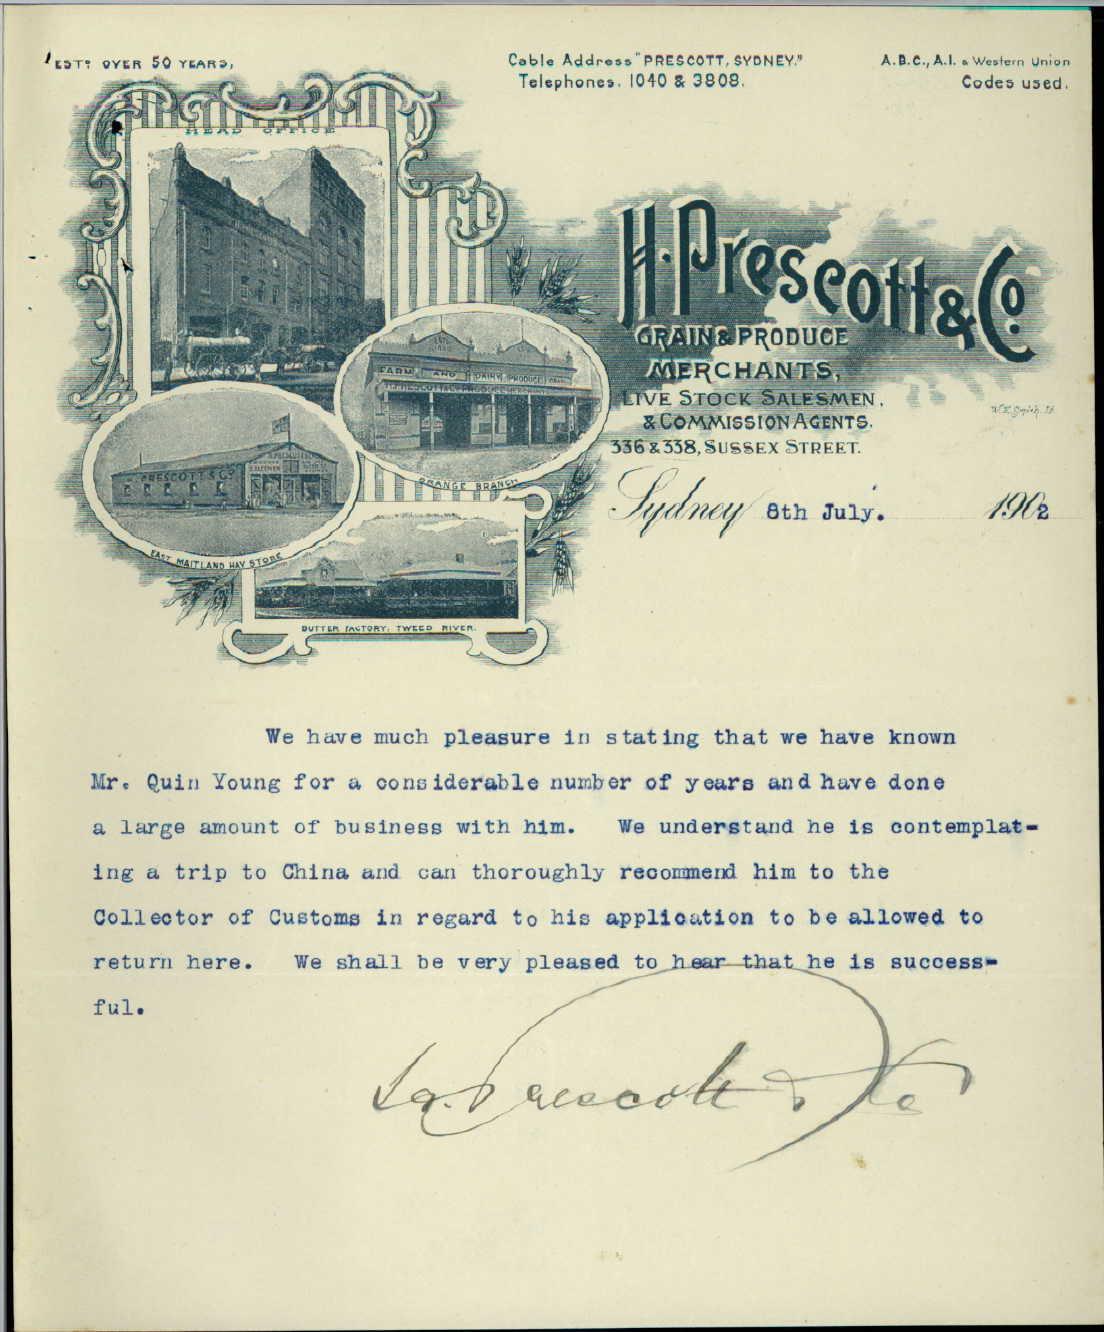 ESTD OVER 50 YEARS,
Cable Address "PRESCOTT, SYDNEY."
Telephones. 1040 & 3808.
A.B.C., A.I. & Western Union
Codes used.
HEAD OFFICE
H. Prescott & Co.
GRAIN & PRODUCE
MERCHANTS,
LIVE STOCK SALESMEN,
& COMMISSION AGENTS.
336 & 338, SUSSEX STREET.
FARM AND DAIRY PRODUCE
ORANGE BRANCH
PRESCOTT & Co
EAST MAITLAND HAY STORE
BUTTER FACTORY, TWEED RIVER.
Sydney 8th July. 1902
We have much pleasure in stating that we have known
Mr. Quin Young for a considerable number of years and have done
a large amount of business with him. We understand he is contemplat-
ing a trip to China and can thoroughly recommend him to the
Collector of Customs in regard to his application to be allowed to
return here. We shall be very pleased to hear that he is success-
ful.
Prescott & Co